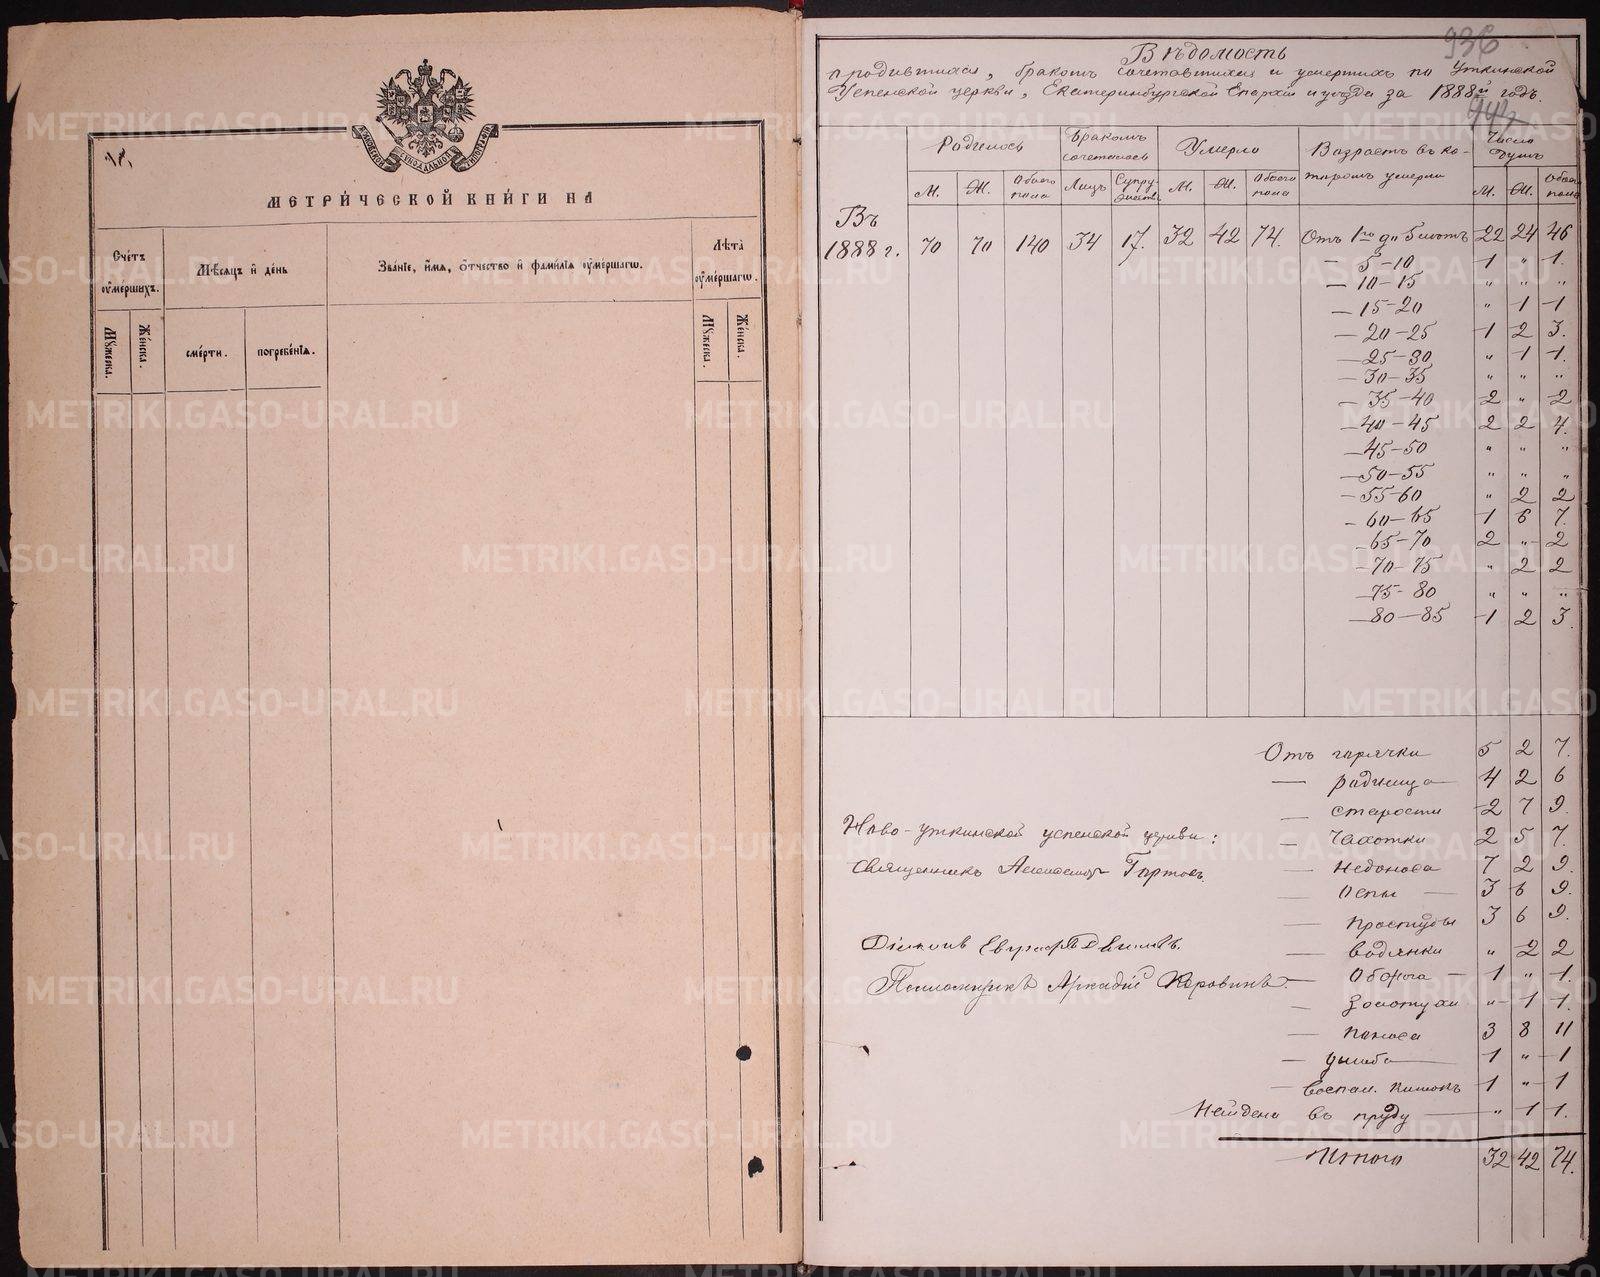 МОСКОВСКОЙ СѴНОДАЛЬНОЙ ТИПОГРАФІИ
МЕТРИ́ЧЕСКОЙ КНИ́ГИ НА
Сче́тъ ᲂу҆ме́ршихъ.
Мѣ́сѧцъ и҆ де́нь
Зва́нїе, и҆́мѧ, ѻ҆́тчество и҆ фами́лїѧ ᲂу҆ме́ршагѡ.
Лѣ́та ᲂу҆ме́ршагѡ.
Мꙋ́жеска.
Же́нска.
сме́рти.
погребе́нїѧ.
Мꙋ́жеска.
Же́нска.
936
Вѣдомость
о родившихся, бракомъ сочетавшихся и умершихъ по Уткинской
Успенской церкви, Екатеринбургской Епархіи и уѣзда за 1888й годъ.
Родилось
Бракомъ сочеталось
Умерло
Возрастъ въ ко-
торомъ умерли
Число душъ
М. Ж. Обоего пола Лицъ Супружествъ М. Ж. Обоего пола М. Ж. Обоего пола
Въ
1888 г. 70 70 140 34 17. 32 42 74. Отъ 1го до 5 лѣтъ 22 24 46
— 5–10 1 „ 1.
— 10–15 „ „ „
— 15–20 „ 1 1
— 20–25 1 2 3.
— 25–30 „ 1 1.
— 30–35 „ „ „
— 35–40 2 „ 2
— 40–45 2 2 4.
— 45–50 „ „ „
— 50–55 „ „ „
— 55–60 „ 2 2
— 60–65 1 6 7.
65–70 2 „ 2
— 70–75 „ 2 2
— 75–80 „ „ „
— 80–85 1 2 3.
Отъ горячки 5 2 7.
— родимца 4 2 6
— старости 2 7 9.
Ново-уткинской успенской церкви:
— Чахотки 2 5 7.
Священникъ
— Недоноса 7 2 9.
— Оспы — 3 6 9.
— Простуды 3 6 9.
Діаконъ
— Водянки „ 2 2
Псаломщикъ Аркадій Коровинъ.
— 1 „ 1.
— Золотухи „ 1 1.
— Поноса 3 8 11
— Ушиба 1 „ 1
— Воспал. 1 „ 1
Найдена въ пруду — „ 1 1.
Итого 32 42 74.
METRIKI.GASO-URAL.RU